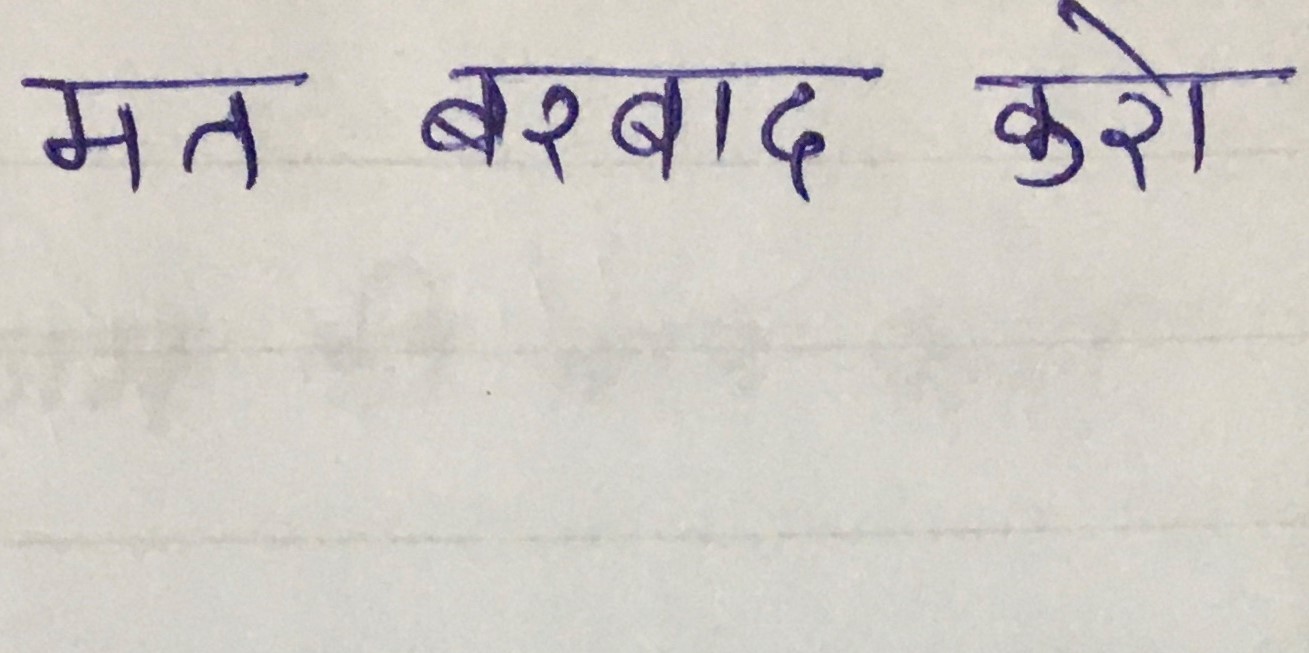 मत बरबाद करो